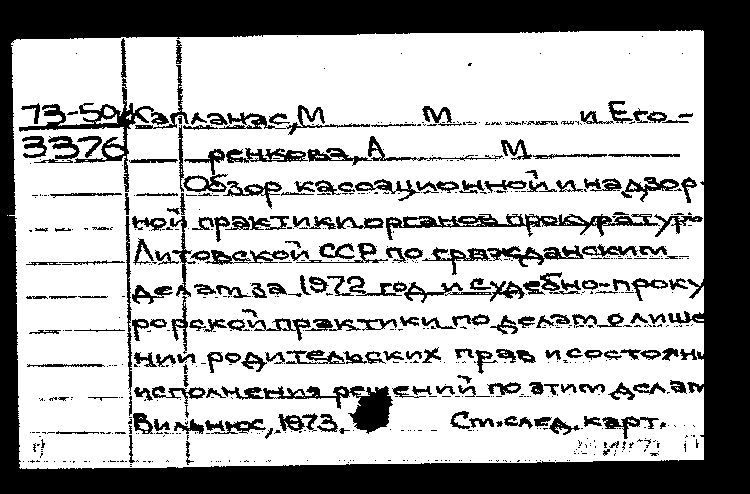 73-50 Капланас, М М и Его-
3376 ренкова, А М
Обзор кассационной и надзор-
ной практики органов прокуратуры
Литовской ССР по гражданским
делам за 1972 год и судебно-проку
рорской практики по делам о лише
нии родительских прав и состояни
исполнения решений по этим делам
Вильнюс, 1973. См. след. карт.